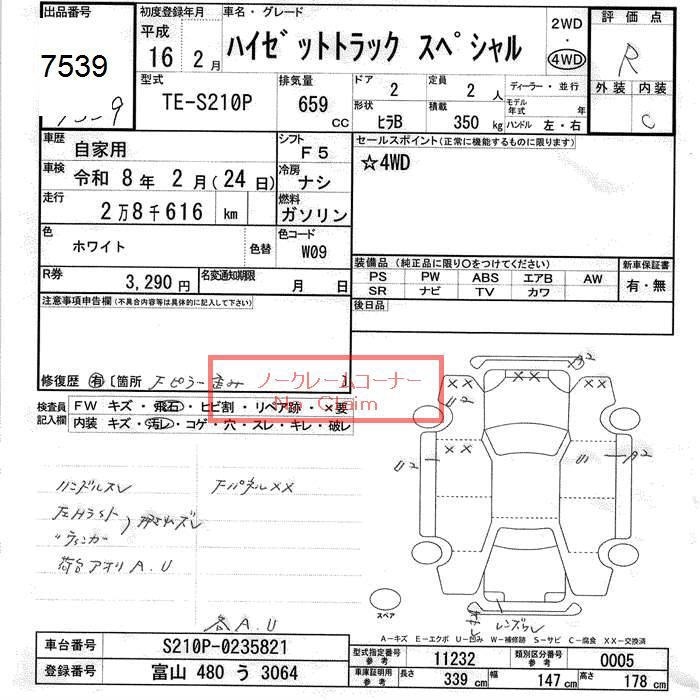 出品番号
7539
初度登録年月
平成
16年 2月
車名・グレード
ハイゼットトラック スペシャル
2WD
・
4WD
評価点
R
外装 内装
C
型式
TE-S210P
排気量
659 CC
ドア
2
定員
2 人
ディーラー・並行
形状
ヒラB
積載
350 kg
モデル年式 年
ハンドル 左・右
車歴
自家用
シフト
F5
セールスポイント(正常に機能するものに限ります)
☆4WD
車検
令和 8年 2月(24日)
冷房
ナシ
走行
2万8千616 km
燃料
ガソリン
色
ホワイト
色替
色コード
W09
装備品(純正品に限り○をつけてください)
新車保証書
PS PW ABS エアB AW
SR ナビ TV カワ
有・無
R券
3,290円
名変通知期限
月 日
後日品
注意事項申告欄(不具合内容等は具体的に記入して下さい)
修復歴 有〔箇所 Fピラー歪み 〕
ノークレームコーナー
No Claim
検査員
記入欄
FW キズ・飛石・ヒビ割・リペア跡・×要
内装 キズ・汚レ・コゲ・穴・スレ・キレ・破レ
ハンドルスレ
FパネルXX
左Hライト
〃ウィンカー
荷台アオリA.U
各A.U
A2
XX
XX
XX
U2
U2
U
A2
スペア
レンズワレ
A-キズ E-エクボ U-凹み W-補修跡 S-サビ C-腐食 XX-交換済
車台番号
S210P-0235821
登録番号
富山 480 う 3064
型式指定番号
参考
11232
類別区分番号
参考
0005
車庫証明用
参考
長さ 339 cm 幅 147 cm 高さ 178 cm